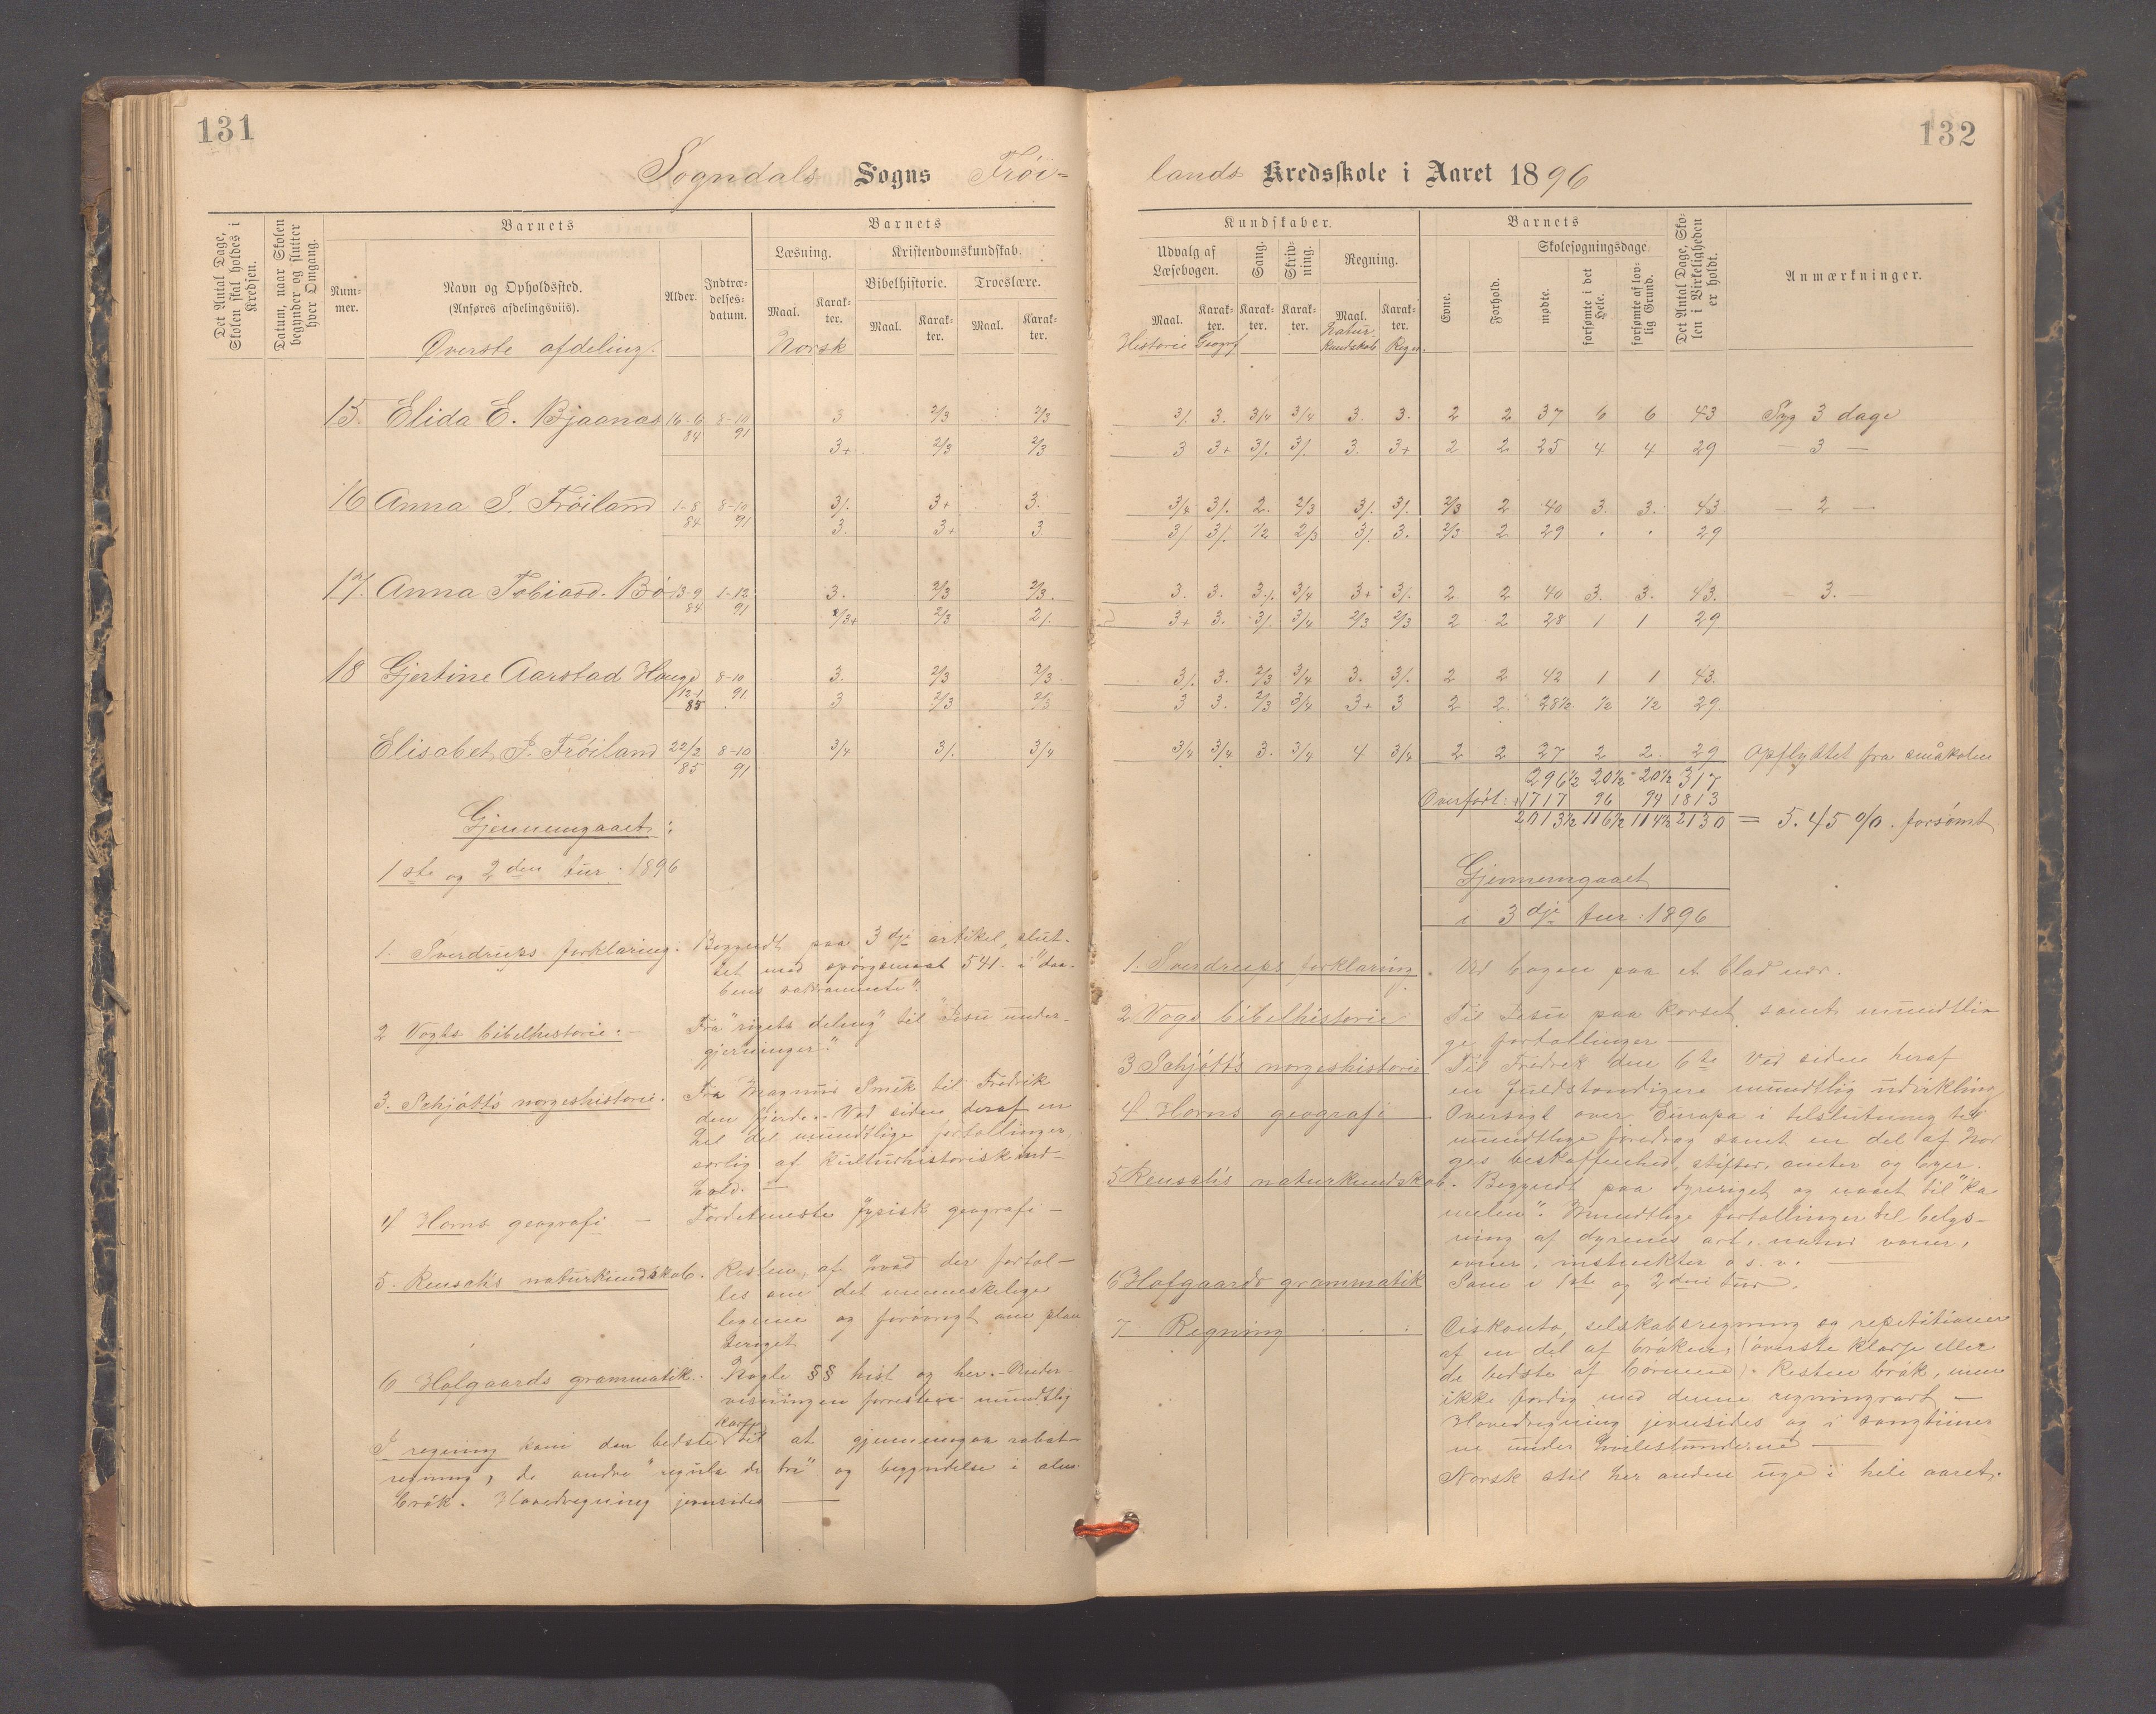 131
132
Sogndals Sogns Frøi-
lands Kredsskole i Aaret 1896
Det Antal Dage, Skolen skal holdes i Kredsen.
Datum, naar Skolen begynder og slutter hver Omgang.
Barnets
Num-
mer.
Navn og Opholdssted.
(Anføres afdelingsviis).
Øverste afdeling.
Alder.
Indtræ-
delses-
datum.
Barnets
Læsning.
Kristendomskundskab.
Bibelhistorie.
Troeslære.
Maal. Karak-
ter. Maal. Karak-
ter. Maal. Karak-
ter.
Norsk
Kundskaber.
Udvalg af
Læsebogen.
Sang.
Skriv-
ning.
Regning.
Maal. Karak-
ter. Karak-
ter. Karak-
ter. Maal. Karak-
ter.
Historie Geogrf Natur
kundskab Regn.
Barnets
Evne.
Forhold.
Skolesøgningsdage.
mødte.
forsømte i det Hele.
forsømte af lov-
lig Grund.
Det Antal Dage, Sko-
len i Virkeligheden
er holdt.
Anmærkninger.
15. Elida E. Bjaanæs 16-6 84 8-10 91 3 2/3 2/3 3/. 3. 3/4 3/4 3. 3. 2 2 37 6 6 43 Syg 3 dage
3+ 2/3 2/3 3 3+ 3/. 3/. 3. 3+ 2 2 25 4 4 29 — 3 —
16 Anna S. Frøiland 1-8 84 8-10 91 3/. 3+ 3. 3/4 3/. 2. 2/3 3/. 3/. 2/3 2 40 3. 3. 43 — 2 —
3. 3+ 3 3/ 3/. 1/2 2/3 3/. 3. 2/3 2 29 . . 29
17. Anna Tobiasd. Bø 13-9 84 1-12 91 3. 2/3 2/3. 3. 3. 3/. 3/4 3+ 3/. 2 2 40 3. 3. 43. — 3. —
2/3+ 2/3 2/. 3+ 3. 3/. 3/4 2/3 2/3 2 2 28 1 1 29
18 Gjertine Aarstad Hauge 12-1 85 8-10 91. 3. 2/3 2/3 3/. 3. 2/3 3/4 3. 3/. 2 2 42 1 1 43.
3 2/3 2/3 3 3. 2/3 3/4 3+ 3 2 2. 28½ ½ ½ 29.
Elisabet J. Frøiland 22/3 85 8-10 91 3/4 3/. 3/4 3/4 3/4 3. 3/4 4 3/4 2 2 27 2 2 29 Opflyttet fra småskolen
296½ 20½ 20½ 317
Overført: +1717 96 94 1813
2013½ 116½ 114½ 2130 = 5.45 %. forsømt
Gjennemgaaet:
1ste og 2den tur. 1896
1. Sverdrups forklaring: Begyndt paa 3dje artikel, slut-
tet med spørgsmaal 541. i "daa-
bens sakramente".
2 Vogts bibelhistorie. — Fra "rigets deling" til "Jesu under-
gjerninger."
3. Schjøtt's norgeshistorie. Fra Magnus Smek til Fredrik
den fjerde. - Ved siden deraf en
hel del mundtlige fortællinger,
særlig af kulturhistorisk ind-
hold. —
4 Horns geografi — Fordetmeste fysisk geografi —
5. Reusch's naturkundskab. Resten af "hvad der fortæl-
les om det menneskelige
legeme og forøvrigt om plan
teriget
6 Hofgaards grammatik. Nogle §§ hist og her. - Under-
visningen forresten mundtlig
I regning kom den bedste karse til at gjennemgaa rabat-
regning, de andre "regula de tri" og begyndelse i alm.
brøk. Hovedregning jevnsides —
Gjennemgaaet
i 3dje tur: 1896
1. Sverdrups forklaring. Ud bogen paa et blad nær.
2 Vogs bibelhistorie Til Jesu paa korset, samt mundtli-
ge fortællinger —
3 Schjøtt's norgeshistorie Til Fredrik den 6te Ved siden heraf
en fuldstændigere mundtlig udvikling
4 Horns geografi. Oversigt over Europa i tilslutning til
mundtlige foredrag samt en del af Nor
ges beskaffenhed, stifter, amter og byer.
5 Reusch's naturkundskab. Begyndt paa dyreriget og naaet til "Ka
melen". Mundtlige fortællinger til belys-
ning af dyrenes art, natur vaner,
evner, instinkter o s. v. —
6 Hofgaards grammatik Som i 1ste og 2den tur.
7 Regning . . . Diskonto, selskabsregning og repetitioner
af en del af brøken, (øverste klasse eller
de bedste af børnene). Resten brøk, men
ikke færdig med denne regningsart —
Hovedregning jevnsides og i sangtimer
ne under hvilestunderne —
Norsk stil hver anden uge i hele aaret.